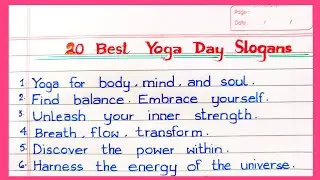 Page :
Date :    /    /
20 Best Yoga Day Slogans
1. Yoga for body, mind, and soul.
2. Find balance. Embrace yourself.
3. Unleash your inner strength.
4. Breath, flow, transform.
5. Discover the power within.
6. Harness the energy of the universe.